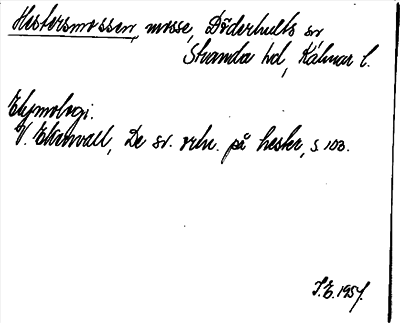 Hestersmossen, mosse, Döderhults sn
Stranda hd, Kalmar l.
Etymologi.
V. Ekenvall, De sv. ortn. på hester, s 103.
S.E. 1957.